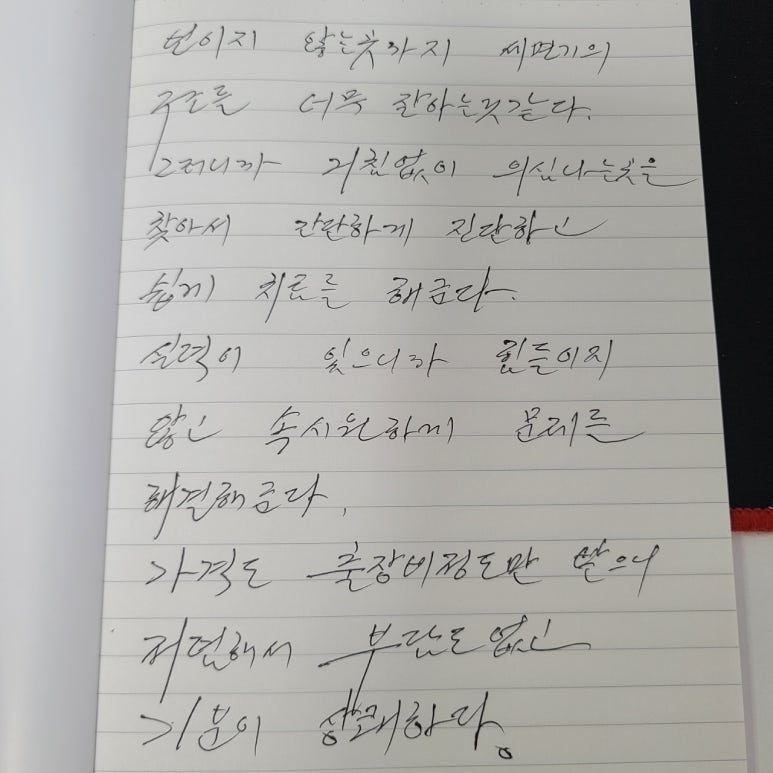 보이지 않는곳까지 세면기의
구조를 너무 잘아는것같다.
그러니까 거침없이 의심나는곳을
찾아서 간단하게 진단하고
쉽게 치료를 해준다.
실력이 있으니까 힘들이지
않고 속시원하게 문제를
해결해준다.
가격도 출장비정도만 받으니
저렴해서 부담도없고
기분이 상쾌하다.